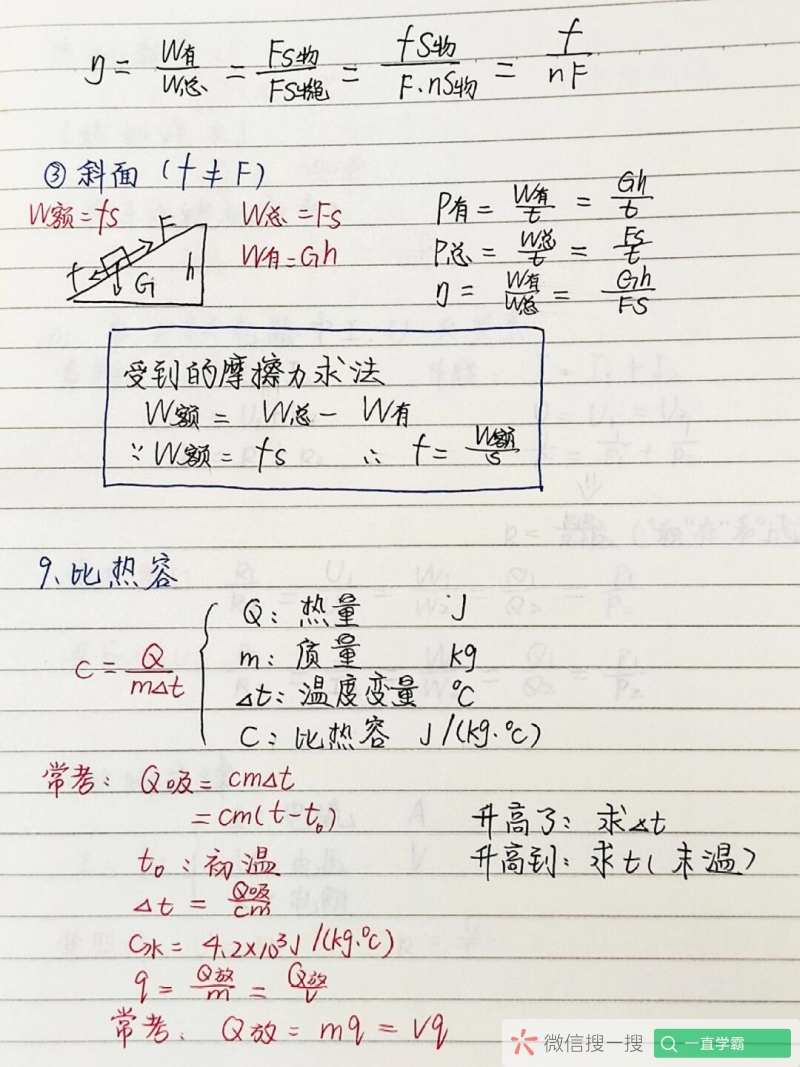 η = W有/W总 = Fs物/Fs绳 = fs物/F·ns物 = f/nF
③ 斜面 (f ≠ F)
W额=fs
W总=Fs
W有=Gh
F
f
G
h
P有 = W有/t = Gh/t
P总 = W总/t = Fs/t
η = W有/W总 = Gh/FS
受到的摩擦力求法
W额 = W总 - W有
∵W额 = fs ∴ f = W额/s
9、比热容
c = Q/m△t
Q: 热量 J
m: 质量 kg
△t: 温度变量 ℃
C: 比热容 J/(kg·℃)
常考: Q吸 = cm△t
= cm(t-t₀)
t₀: 初温
△t = Q吸/cm
C水 = 4.2×10³J/(kg·℃)
q = Q放/m = Q放/V
常考: Q放 = mq = Vq
升高了: 求△t
升高到: 求t(末温)
微信搜一搜
一直学霸